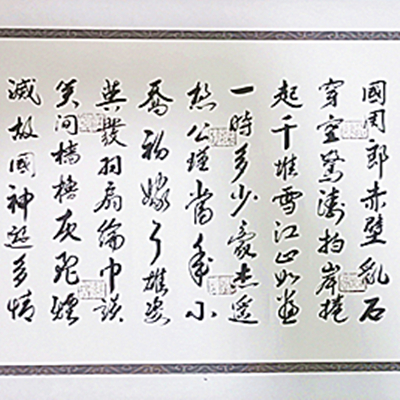 國周郎赤壁亂石
穿空驚濤拍岸捲
起千堆雪江山如畫
一時多少豪杰遙
想公瑾當年小
喬初嫁了雄姿
英發羽扇綸巾談
笑间檣櫓灰飛煙
滅故國神遊多情